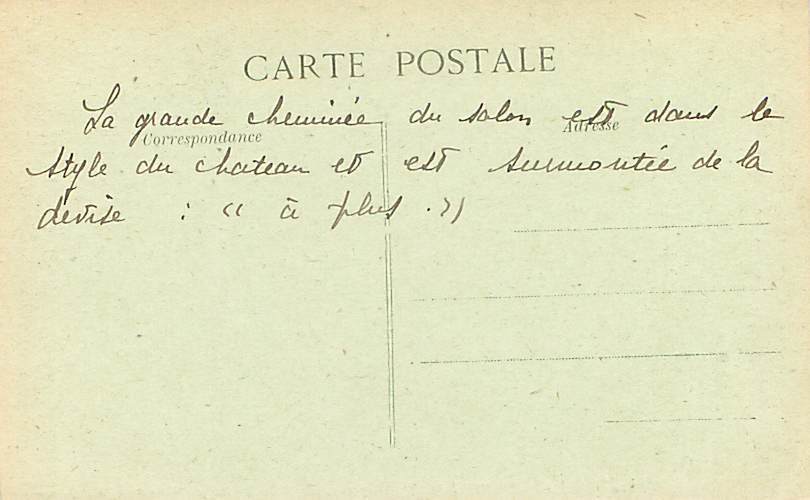 CARTE POSTALE
La grande cheminée du salon est dans le
Correspondance
Adresse
style du chateau et est surmontée de la
devise : « à plus . »